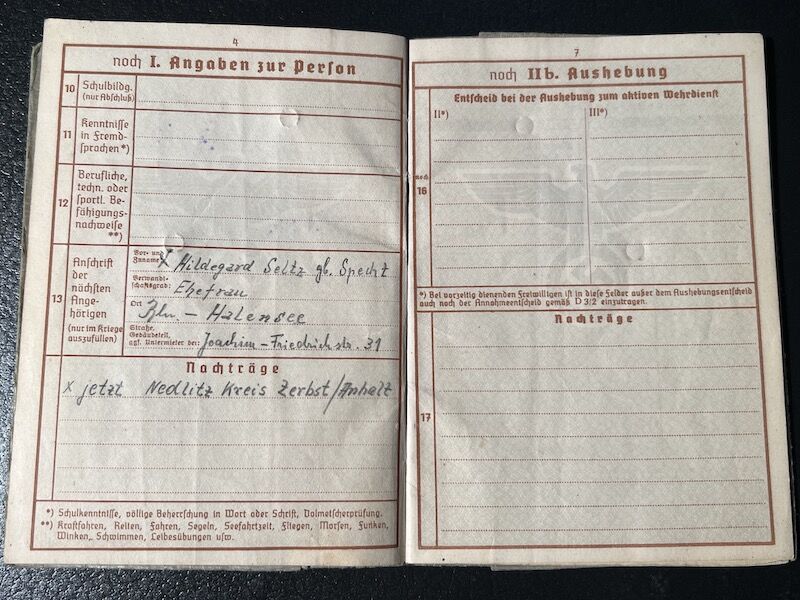 4
noch I. Angaben zur Person
10 Schulbildg.
(nur Abschluß)
11 Kenntnisse
in Fremd-
sprachen*)
12 Berufliche,
techn. oder
sportl. Be-
fähigungs-
nachweise
**)
13 Anschrift
der
nächsten
Ange-
hörigen
(nur im Kriege
auszufüllen)
Vor- und
Zuname X Hildegard Seltz gb. Specht
Verwandt-
schaftsgrad: Ehefrau
Ort Bln. - Halensee
Straße,
Gebäudeteil,
ggf. Untermieter bei: Joachim-Friedrichstr. 31
Nachträge
x jetzt Nedlitz Kreis Zerbst/Anhalt
*) Schulkenntnisse, völlige Beherrschung in Wort oder Schrift, Dolmetscherprüfung.
**) Kraftfahren, Reiten, Fahren, Segeln, Seefahrtzeit, Fliegen, Morsen, Funken,
Winken, Schwimmen, Leibesübungen usw.
7
noch IIb. Aushebung
Entscheid bei der Aushebung zum aktiven Wehrdienst
II*) III*)
noch
16
*) Bei vorzeitig dienenden Freiwilligen ist in diese Felder außer dem Aushebungsentscheid
auch noch der Annahmeentscheid gemäß D 3/2 einzutragen.
Nachträge
17